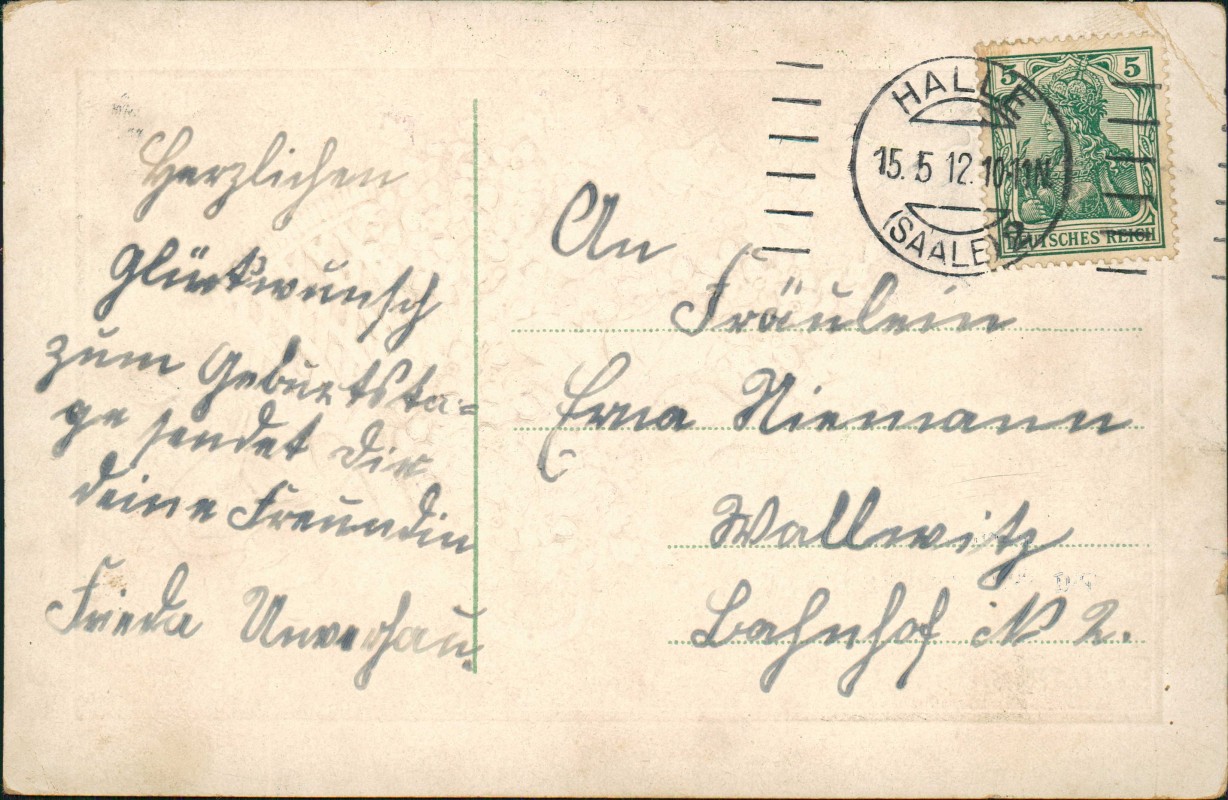 Herzlichen
Glückwunsch
zum Geburtsta=
ge sendet Dir
deine Freundin
Frieda Unverhau.
HALLE
15.5 12.10-11N
(SAALE)
5 5
DEUTSCHES REICH
An
Fräulein
Erna Niemann
Wallwitz
Bahnhof N 2.